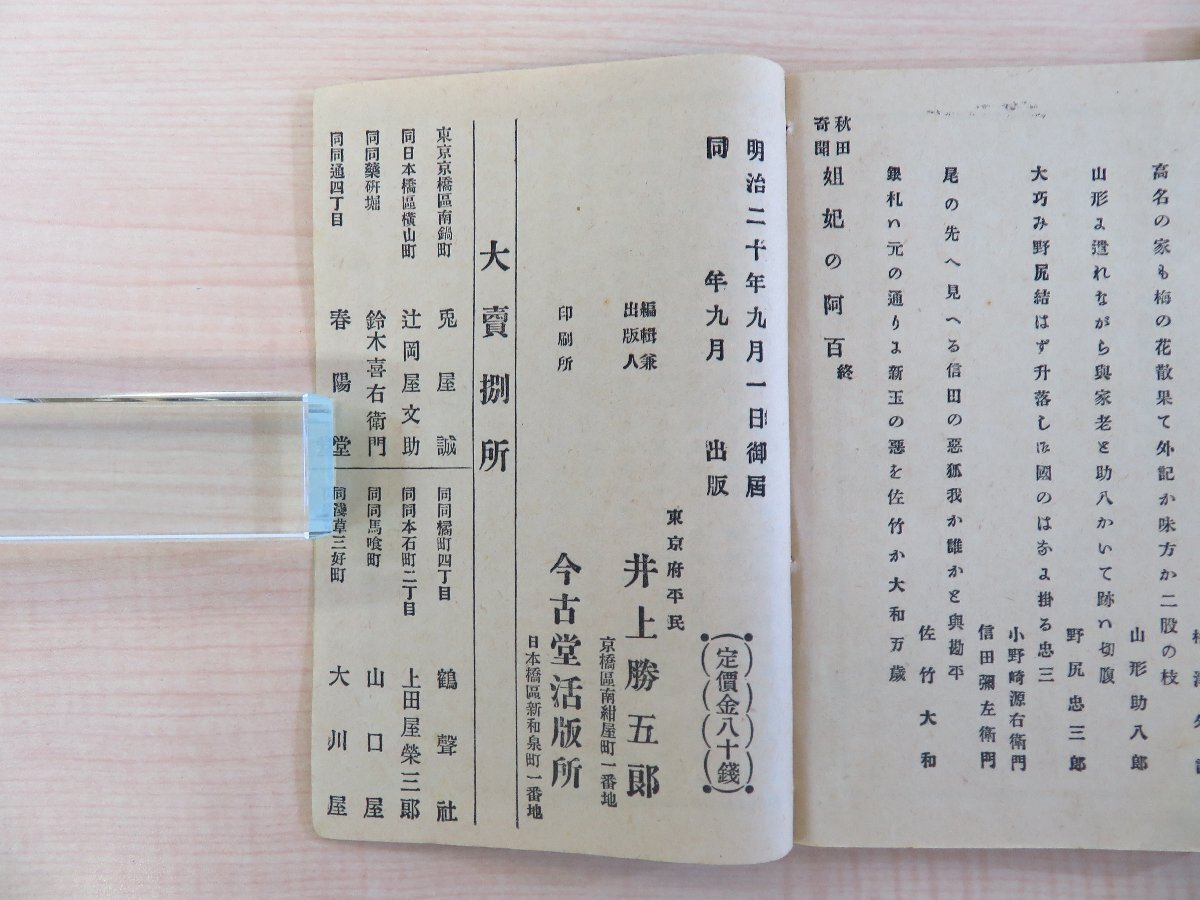 高名の家も梅の花散果て外記か味方か二股の枝
山形よ遣れながら與家老と助八かいて跡ハ切腹
山形助八郎
大巧み野尻結はず升落し
野尻忠三郎
國のは
よ掛る忠三
小野崎源右衛門
尾の先へ見へる信田の惡狐我か誰かと與勘平
信田彌左衛門
銀札ハ元の通りよ新玉の惡を佐竹か大和万歳
佐竹大和
秋田
奇聞
妲妃の阿百 終
明治二十年九月一日御屆
同年九月同出版
(定價金八十錢)
東京府平民
編輯兼
出版人
井上勝五郎
京橋區南紺屋町一番地
印刷所
今古堂活版所
日本橋區新和泉町一番地
大賣捌所
東京京橋區南鍋町 兎屋誠
同日本橋區橫山町 辻岡屋文助
同同藥硏堀 鈴木喜右衛門
同同通四丁目 春陽堂
同同橘町四丁目 鶴聲社
同同本石町二丁目 上田屋榮三郎
同同馬喰町 山口屋
同淺草三好町 大川屋